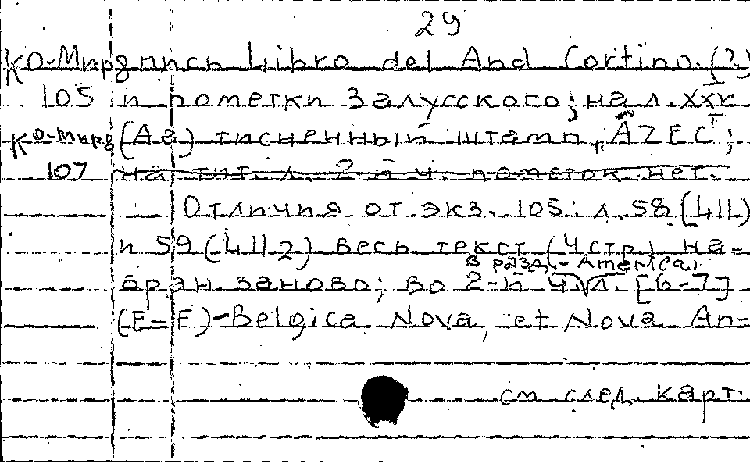 29
КО-Мирз пись Libro del And Cortino (?)
105 и пометки Залусского; на л. XXV
КО-Мирз (Aa) тисненный штамп "AZEC";
107 на тит. л. 2-й ч. пометок нет.
Отличия от экз. 105: л. 58 (LII)
и 59 (LII2) весь текст (4 стр.) на-
в разд. - America,
бран заново; во 2-й ч. л. [6-7]
(E-F) - Belgica Nova, et Nova An=
см след. карт.